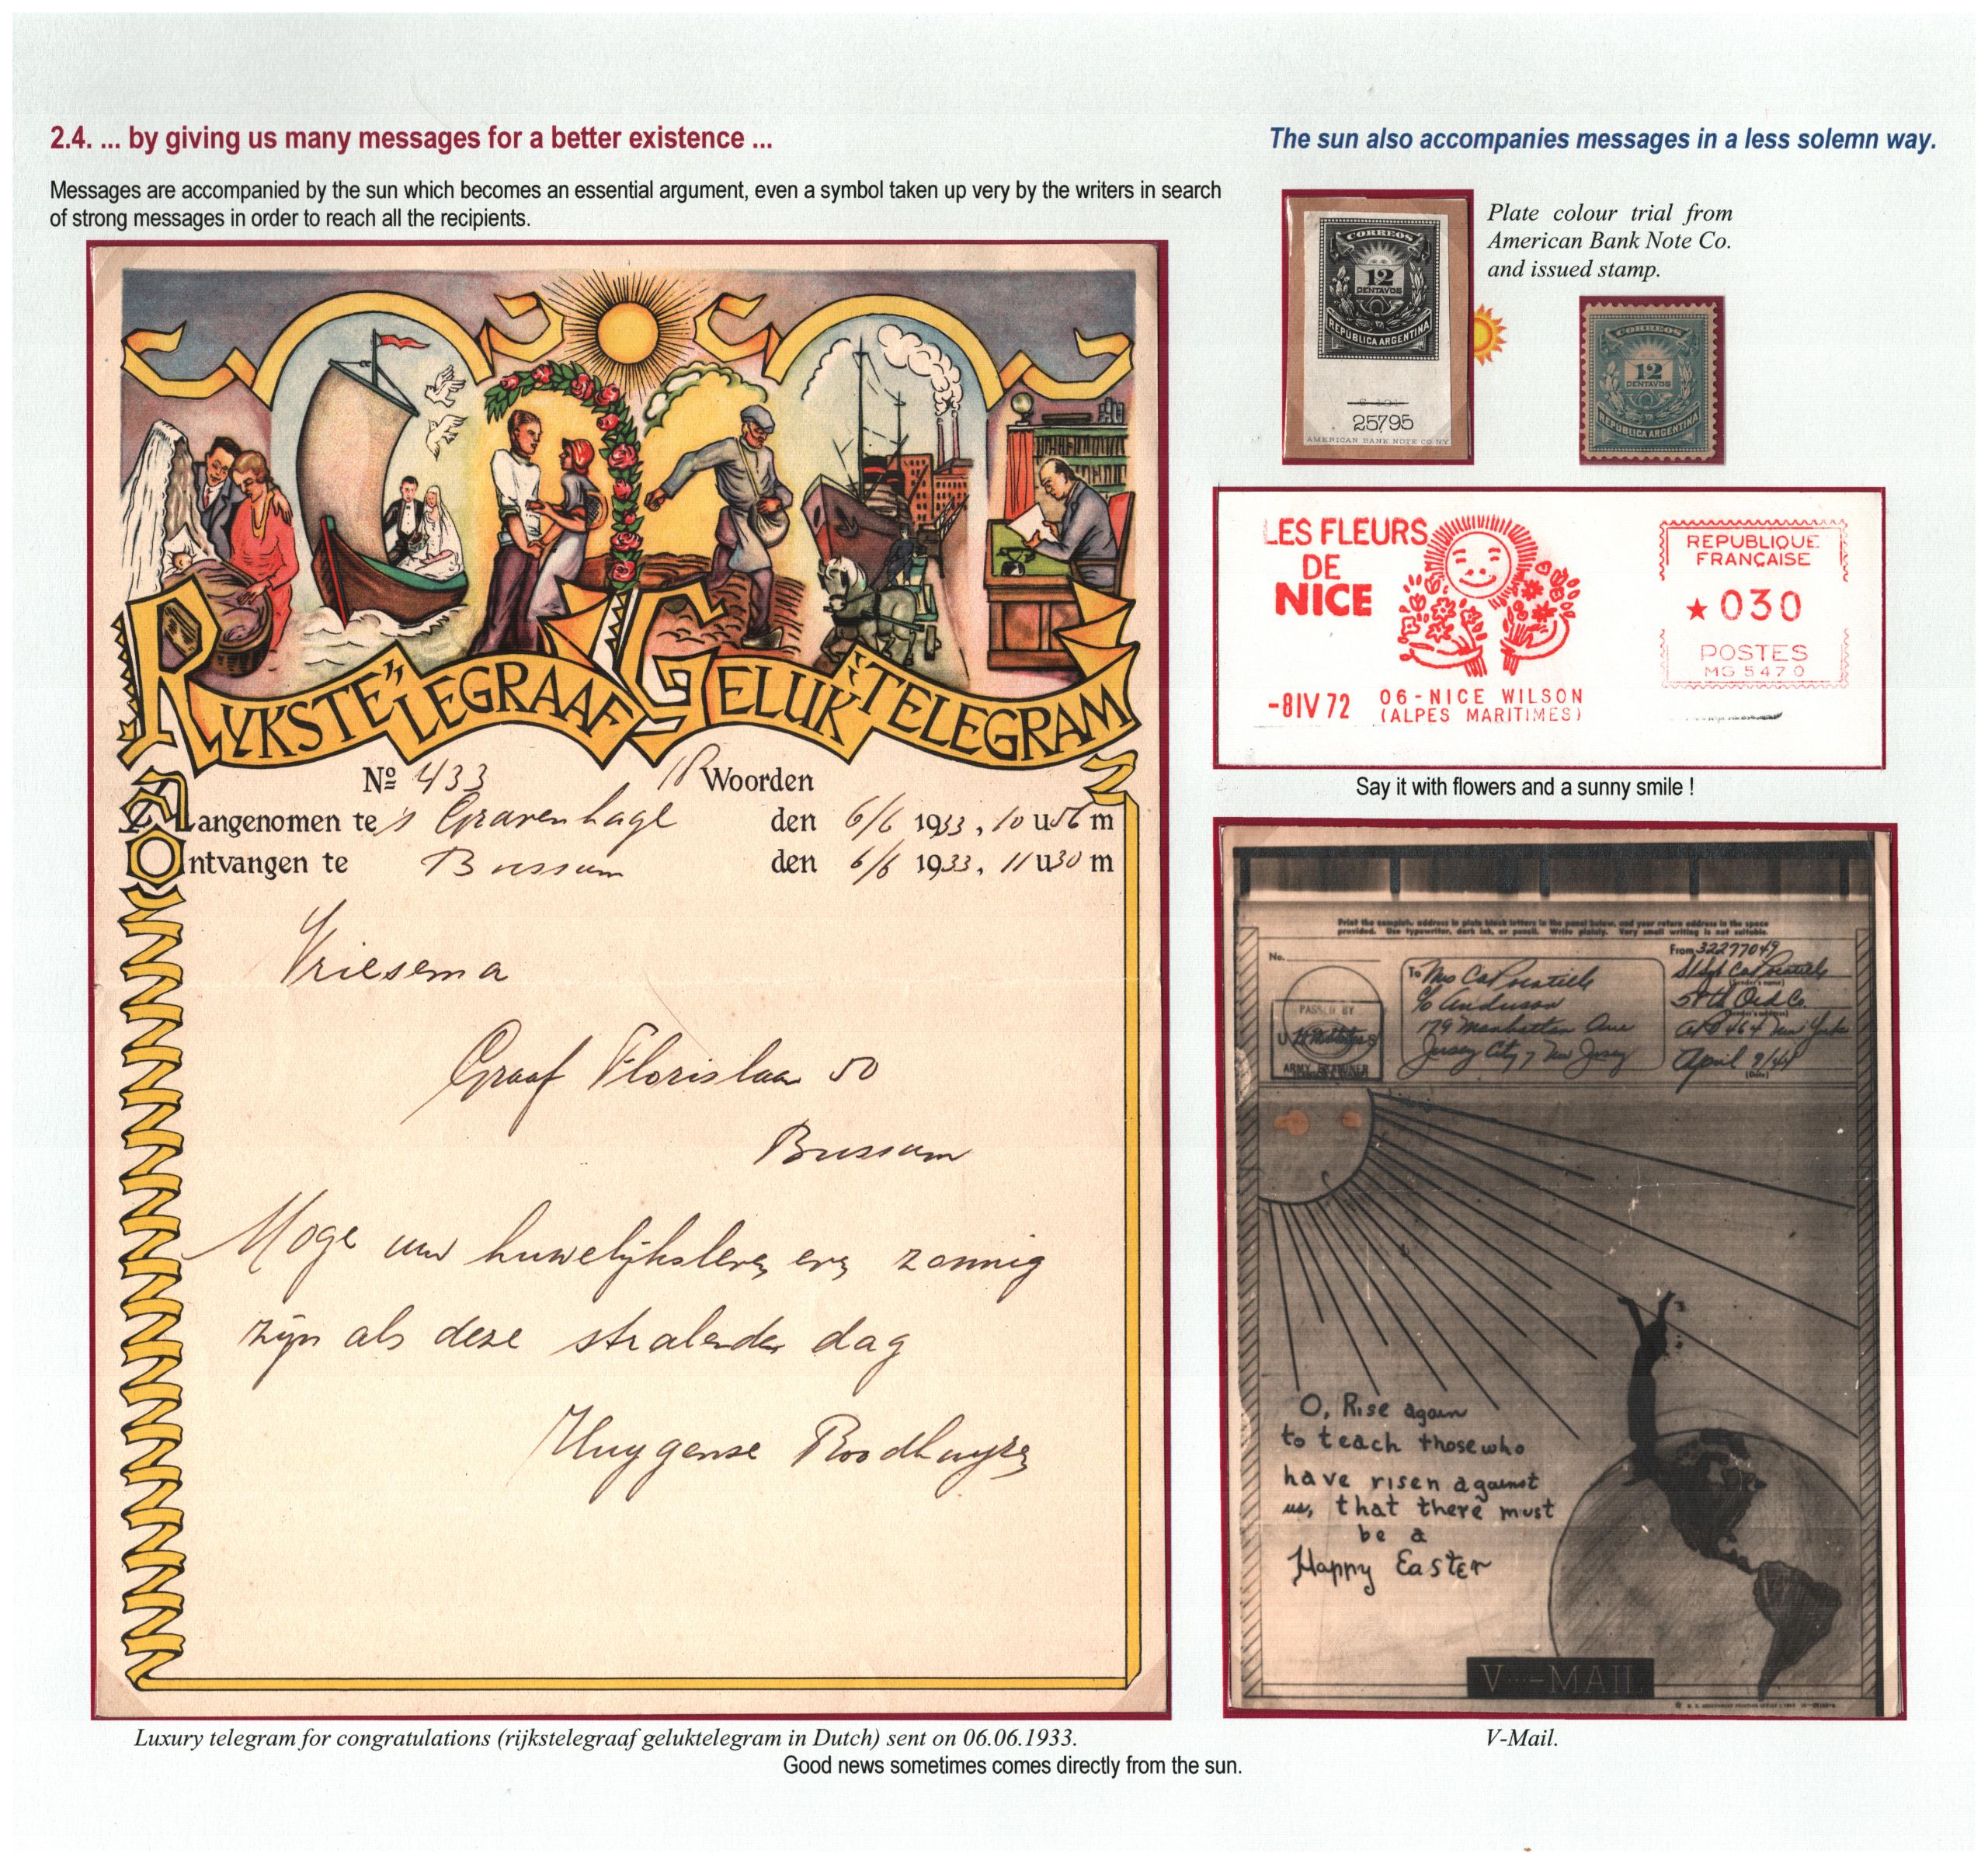 2.4. ... by giving us many messages for a better existence ...
Messages are accompanied by the sun which becomes an essential argument, even a symbol taken up very by the writers in search
of strong messages in order to reach all the recipients.
RYKSTELEGRAAF GELUKTELEGRAM
Nº 433 18 Woorden
Aangenomen te 's Gravenhage den 6/6 1933, 10 u 56 m
Ontvangen te Bussum den 6/6 1933, 11 u 30 m
Vriesema
Graaf Florislaan 50
Bussum
Moge uw huwelijksleven even zonnig
zijn als deze stralende dag
Huygense Roodhuyzen
Luxury telegram for congratulations (rijkstelegraaf geluktelegram in Dutch) sent on 06.06.1933.
Good news sometimes comes directly from the sun.
The sun also accompanies messages in a less solemn way.
CORREOS
12
CENTAVOS
REPUBLICA ARGENTINA
25795
AMERICAN BANK NOTE CO. NY
Plate colour trial from
American Bank Note Co.
and issued stamp.
CORREOS
12
CENTAVOS
REPUBLICA ARGENTINA
LES FLEURS
DE
NICE
-8 IV 72 06-NICE WILSON
(ALPES MARITIMES)
REPUBLIQUE
FRANÇAISE
★ 030
POSTES
MG 5470
Say it with flowers and a sunny smile !
Print the complete address in plain block letters in the panel below, and your return address in the space
provided. Use typewriter, dark ink, or pencil. Write plainly. Very small writing is not suitable.
No.
PASSED BY
U S
ARMY EXAMINER
To Mrs
c/o Anderson
179 Manhattan Ave
Jersey City 7 New Jersey
From 32277049
S/Sgt
(Sender's name)
58th Ord Co.
(Sender's address)
APO 464 New York
April 9/44
(Date)
O, Rise again
to teach those who
have risen against
us, that there must
be a
Happy Easter
V···-MAIL
V-Mail.